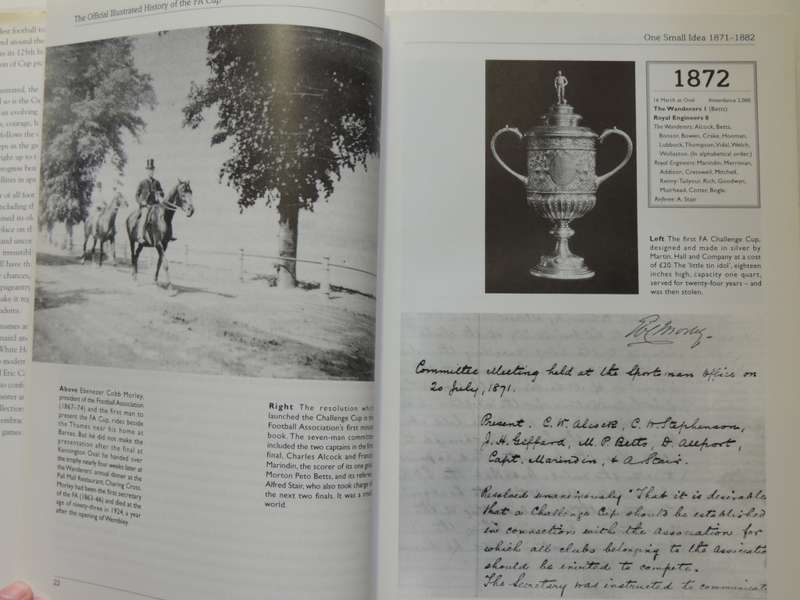 The Official Illustrated History of the FA Cup
lest football to
nd around the
n of Cup pic
ustrated, the
an evolving
follows the
ght up to
including th
place on th
and uncor
irresistibl
ll have th
chances,
White Ho
Above Ebenezer Cobb Morley,
president of the Football Association
(1867–74) and the first man to
present the FA Cup, rides beside
the Thames near his home at
Barnes. But he did not make the
presentation after the final at
Kennington Oval: he handed over
the trophy nearly four weeks later at
the Wanderers' annual dinner at the
Pall Mall Restaurant, Charing Cross.
Morley had been the first secretary
of the FA (1863–66) and died at the
age of ninety-three in 1924, a year
after the opening of Wembley.
Right The resolution whic
launched the Challenge Cup in the
Football Association's first minute
book. The seven-man committe
included the two captains in the firs
final, Charles Alcock and Franci
Marindin, the scorer of its one goal
Morton Peto Betts, and its referee
Alfred Stair, who also took charge of
the next two finals. It was a small
world.
22
One Small Idea 1871–1882
1872
16 March at Oval Attendance 2,000
The Wanderers 1 (Betts)
Royal Engineers 0
The Wanderers: Alcock, Betts,
Bonsor, Bowen, Crake, Hooman,
Lubbock, Thompson, Vidal, Welch,
Wollaston. (In alphabetical order.)
Royal Engineers: Marindin, Merriman,
Addison, Cresswell, Mitchell,
Renny-Tailyour, Rich, Goodwyn,
Muirhead, Cotter, Bogle.
Referee: A. Stair
Left The first FA Challenge Cup,
designed and made in silver by
Martin, Hall and Company at a cost
of £20. The 'little tin idol', eighteen
inches high, capacity one quart,
served for twenty-four years – and
was then stolen.
Committee Meeting held at the Sportsman Office on
20 July, 1871.
Present. C. W. Alcock, C. W. Stephenson,
J. H. Giffard, M. P. Betts, D. Allport,
Capt. Marindin, & A. Stair.
Resolved unanimously "That it is desirable
that a Challenge Cup should be established
in connection with the Association for
which all clubs belonging to the Associati
should be invited to compete.
The Secretary was instructed to communicat